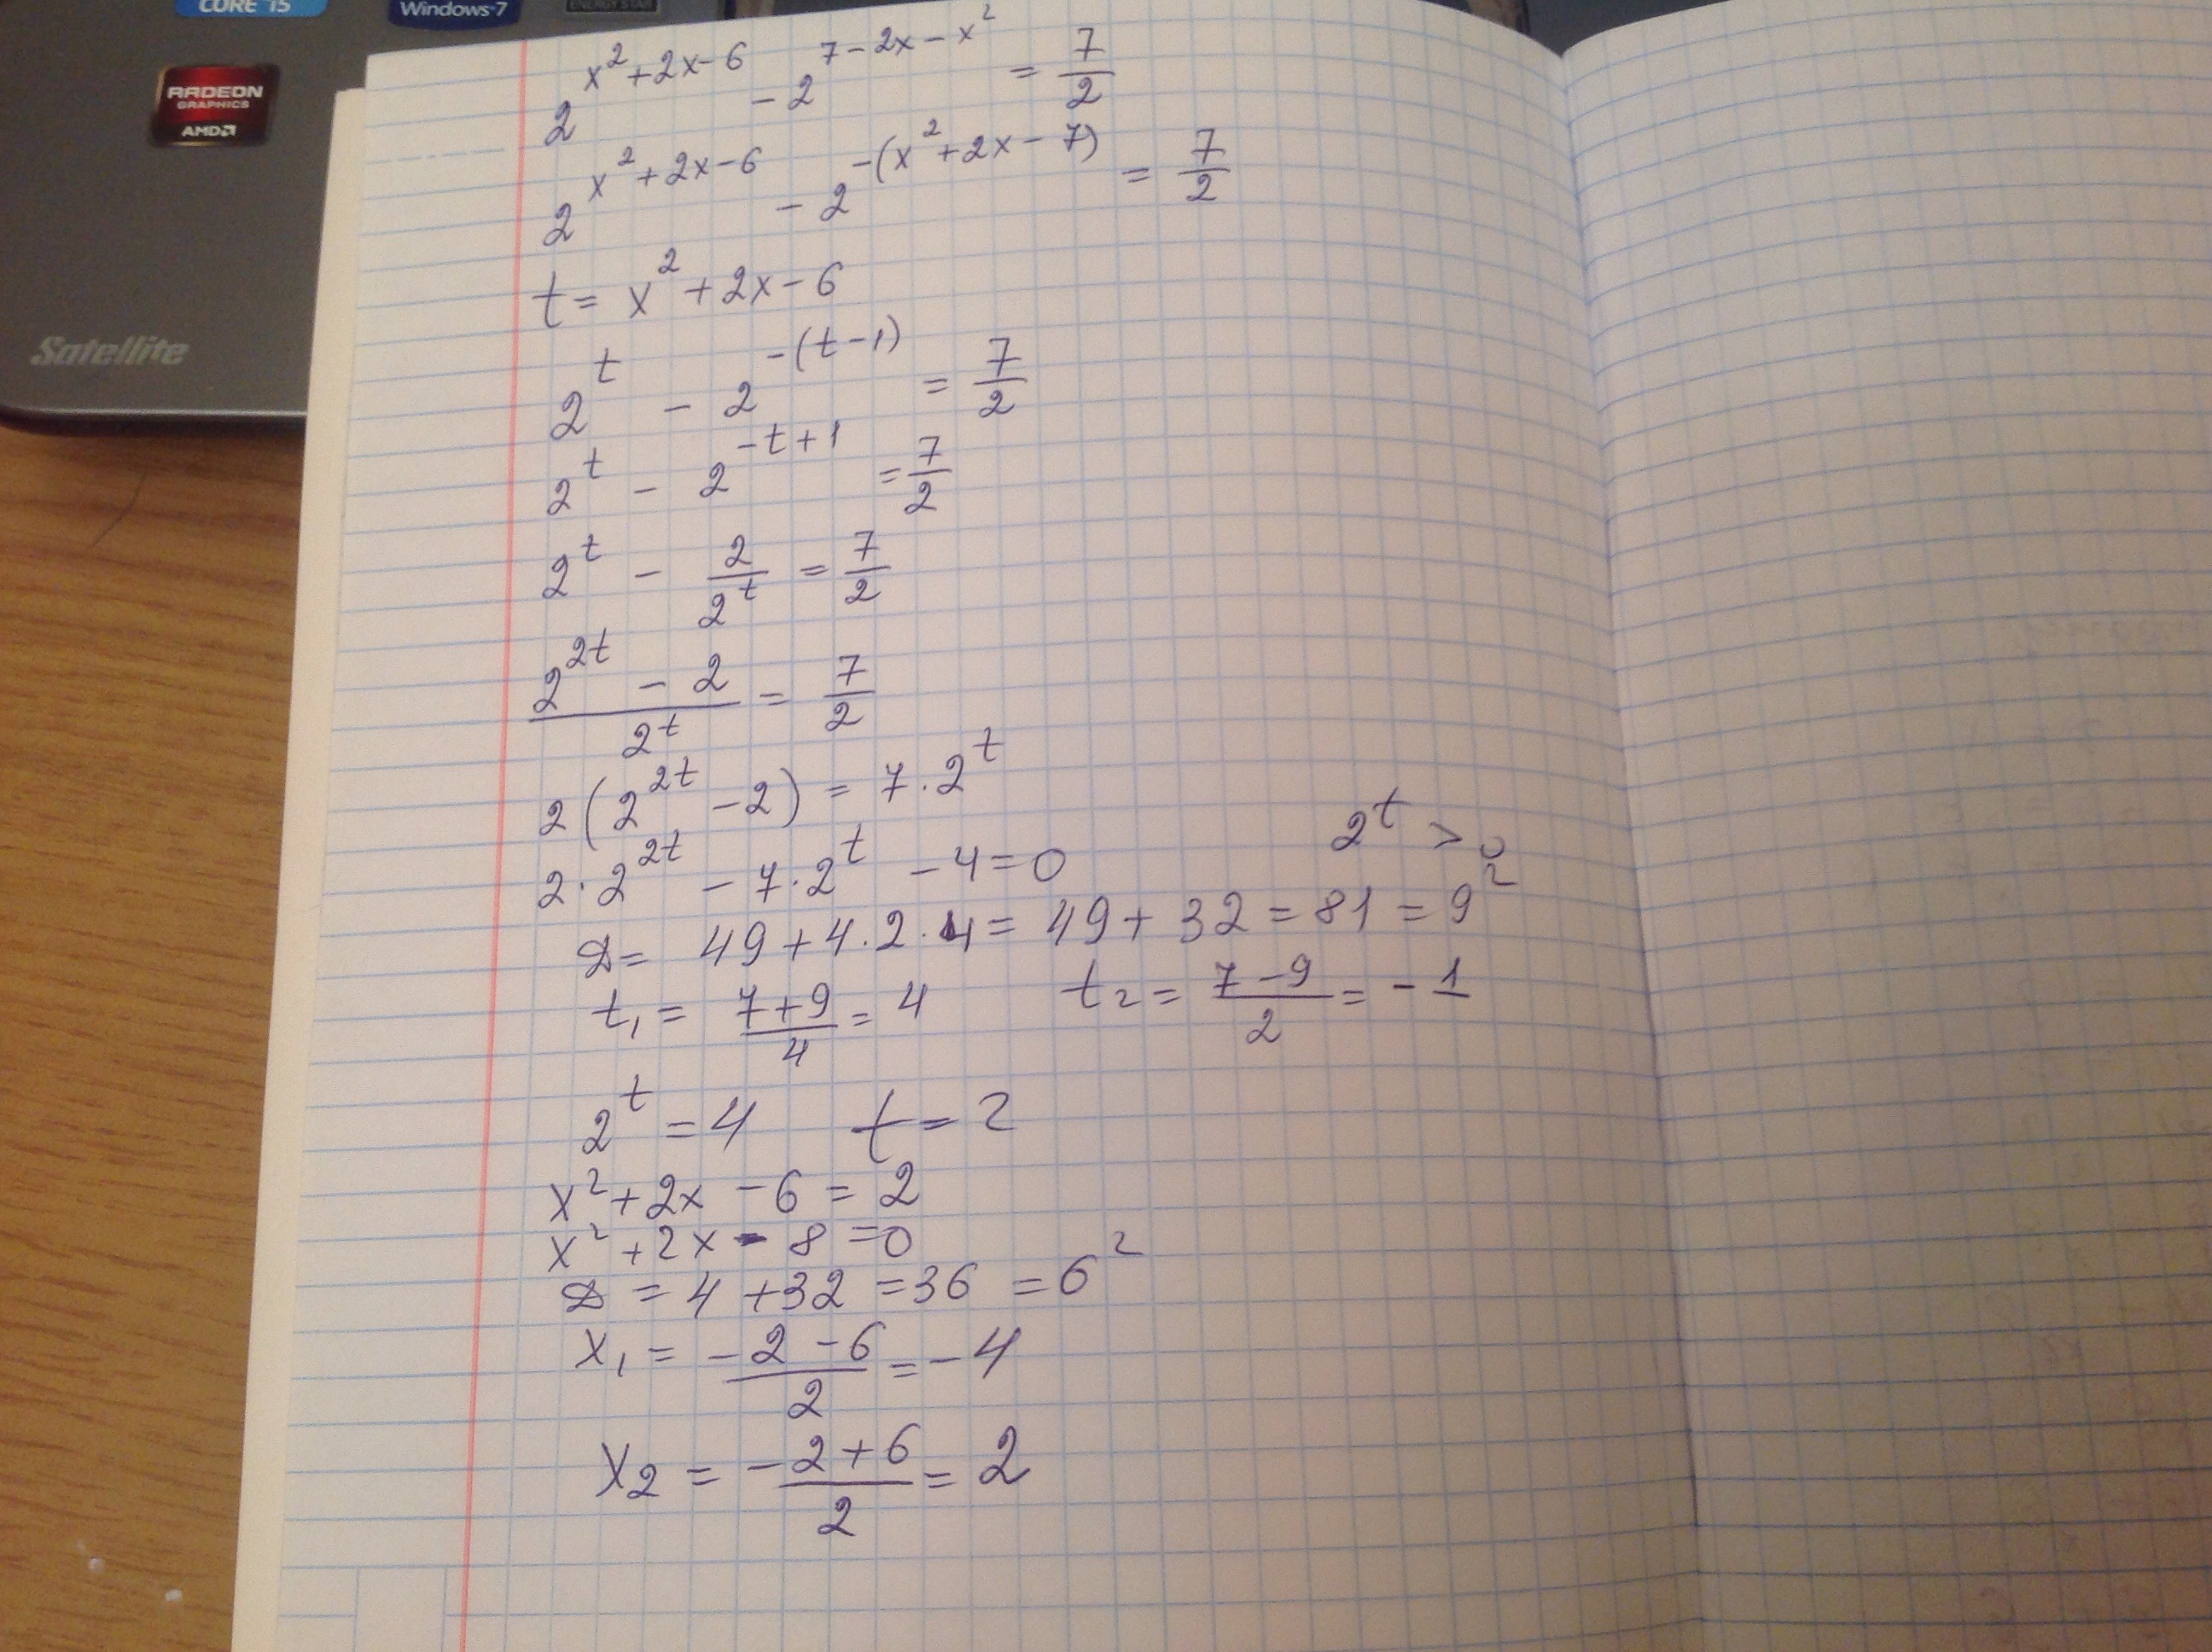 CORE i5
Windows 7
ENERGY STAR
RADEON
GRAPHICS
AMD
Satellite
2^(x²+2x-6) - 2^(7-2x-x²) = 7/2
2^(x²+2x-6) - 2^(-(x²+2x-7)) = 7/2
t = x²+2x-6
2^t - 2^(-(t-1)) = 7/2
2^t - 2^(-t+1) = 7/2
2^t - 2/2^t = 7/2
(2^(2t) - 2)/2^t = 7/2
2(2^(2t) - 2) = 7·2^t
2·2^(2t) - 7·2^t - 4 = 0 2^t > 0
D = 49+4·2·4 = 49+32 = 81 = 9²
t₁ = (7+9)/4 = 4 t₂ = (7-9)/2 = -1
2^t = 4 t = 2
x²+2x-6 = 2
x²+2x-8 = 0
D = 4+32 = 36 = 6²
x₁ = (-2-6)/2 = -4
x₂ = (-2+6)/2 = 2